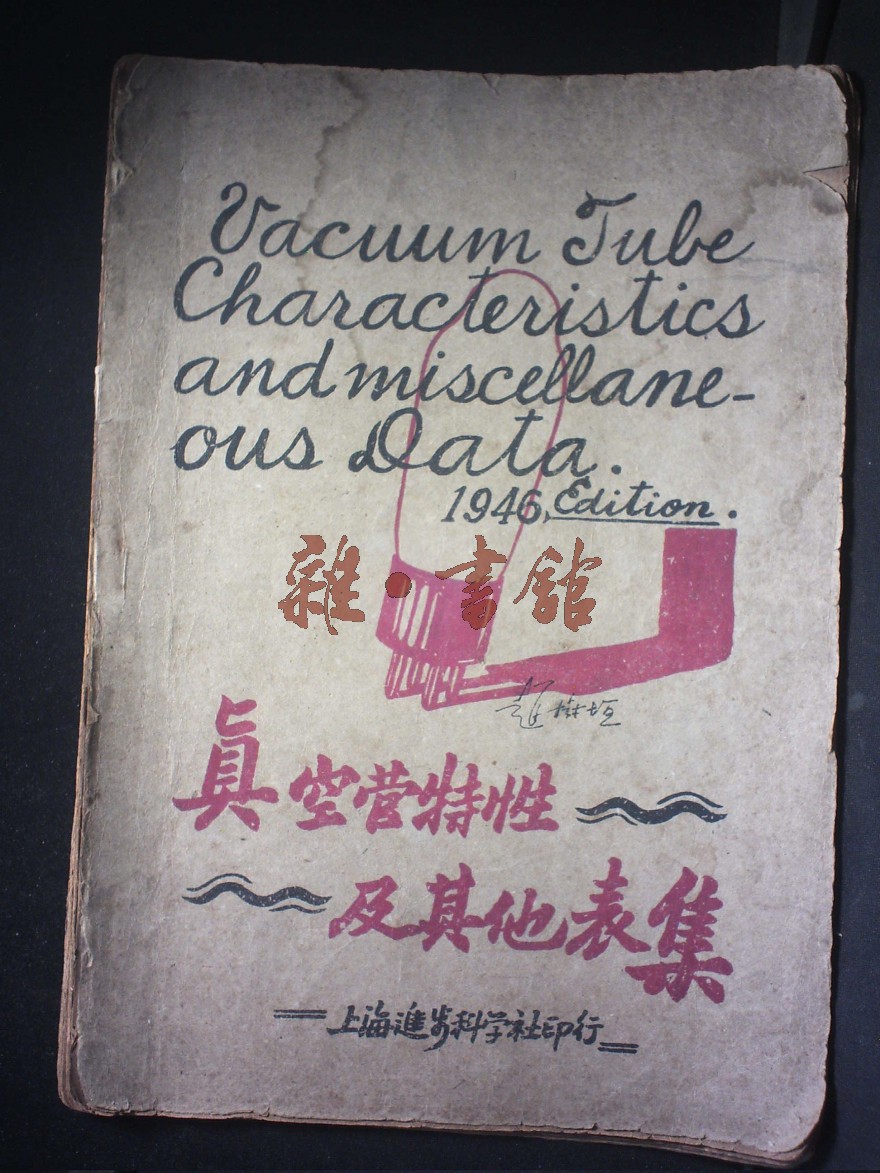 Vacuum Tube
Characteristics
and miscellane-
ous Data.
1946, Edition.
雜·書館
眞空管特性
及其他表集
上海進步科学社印行